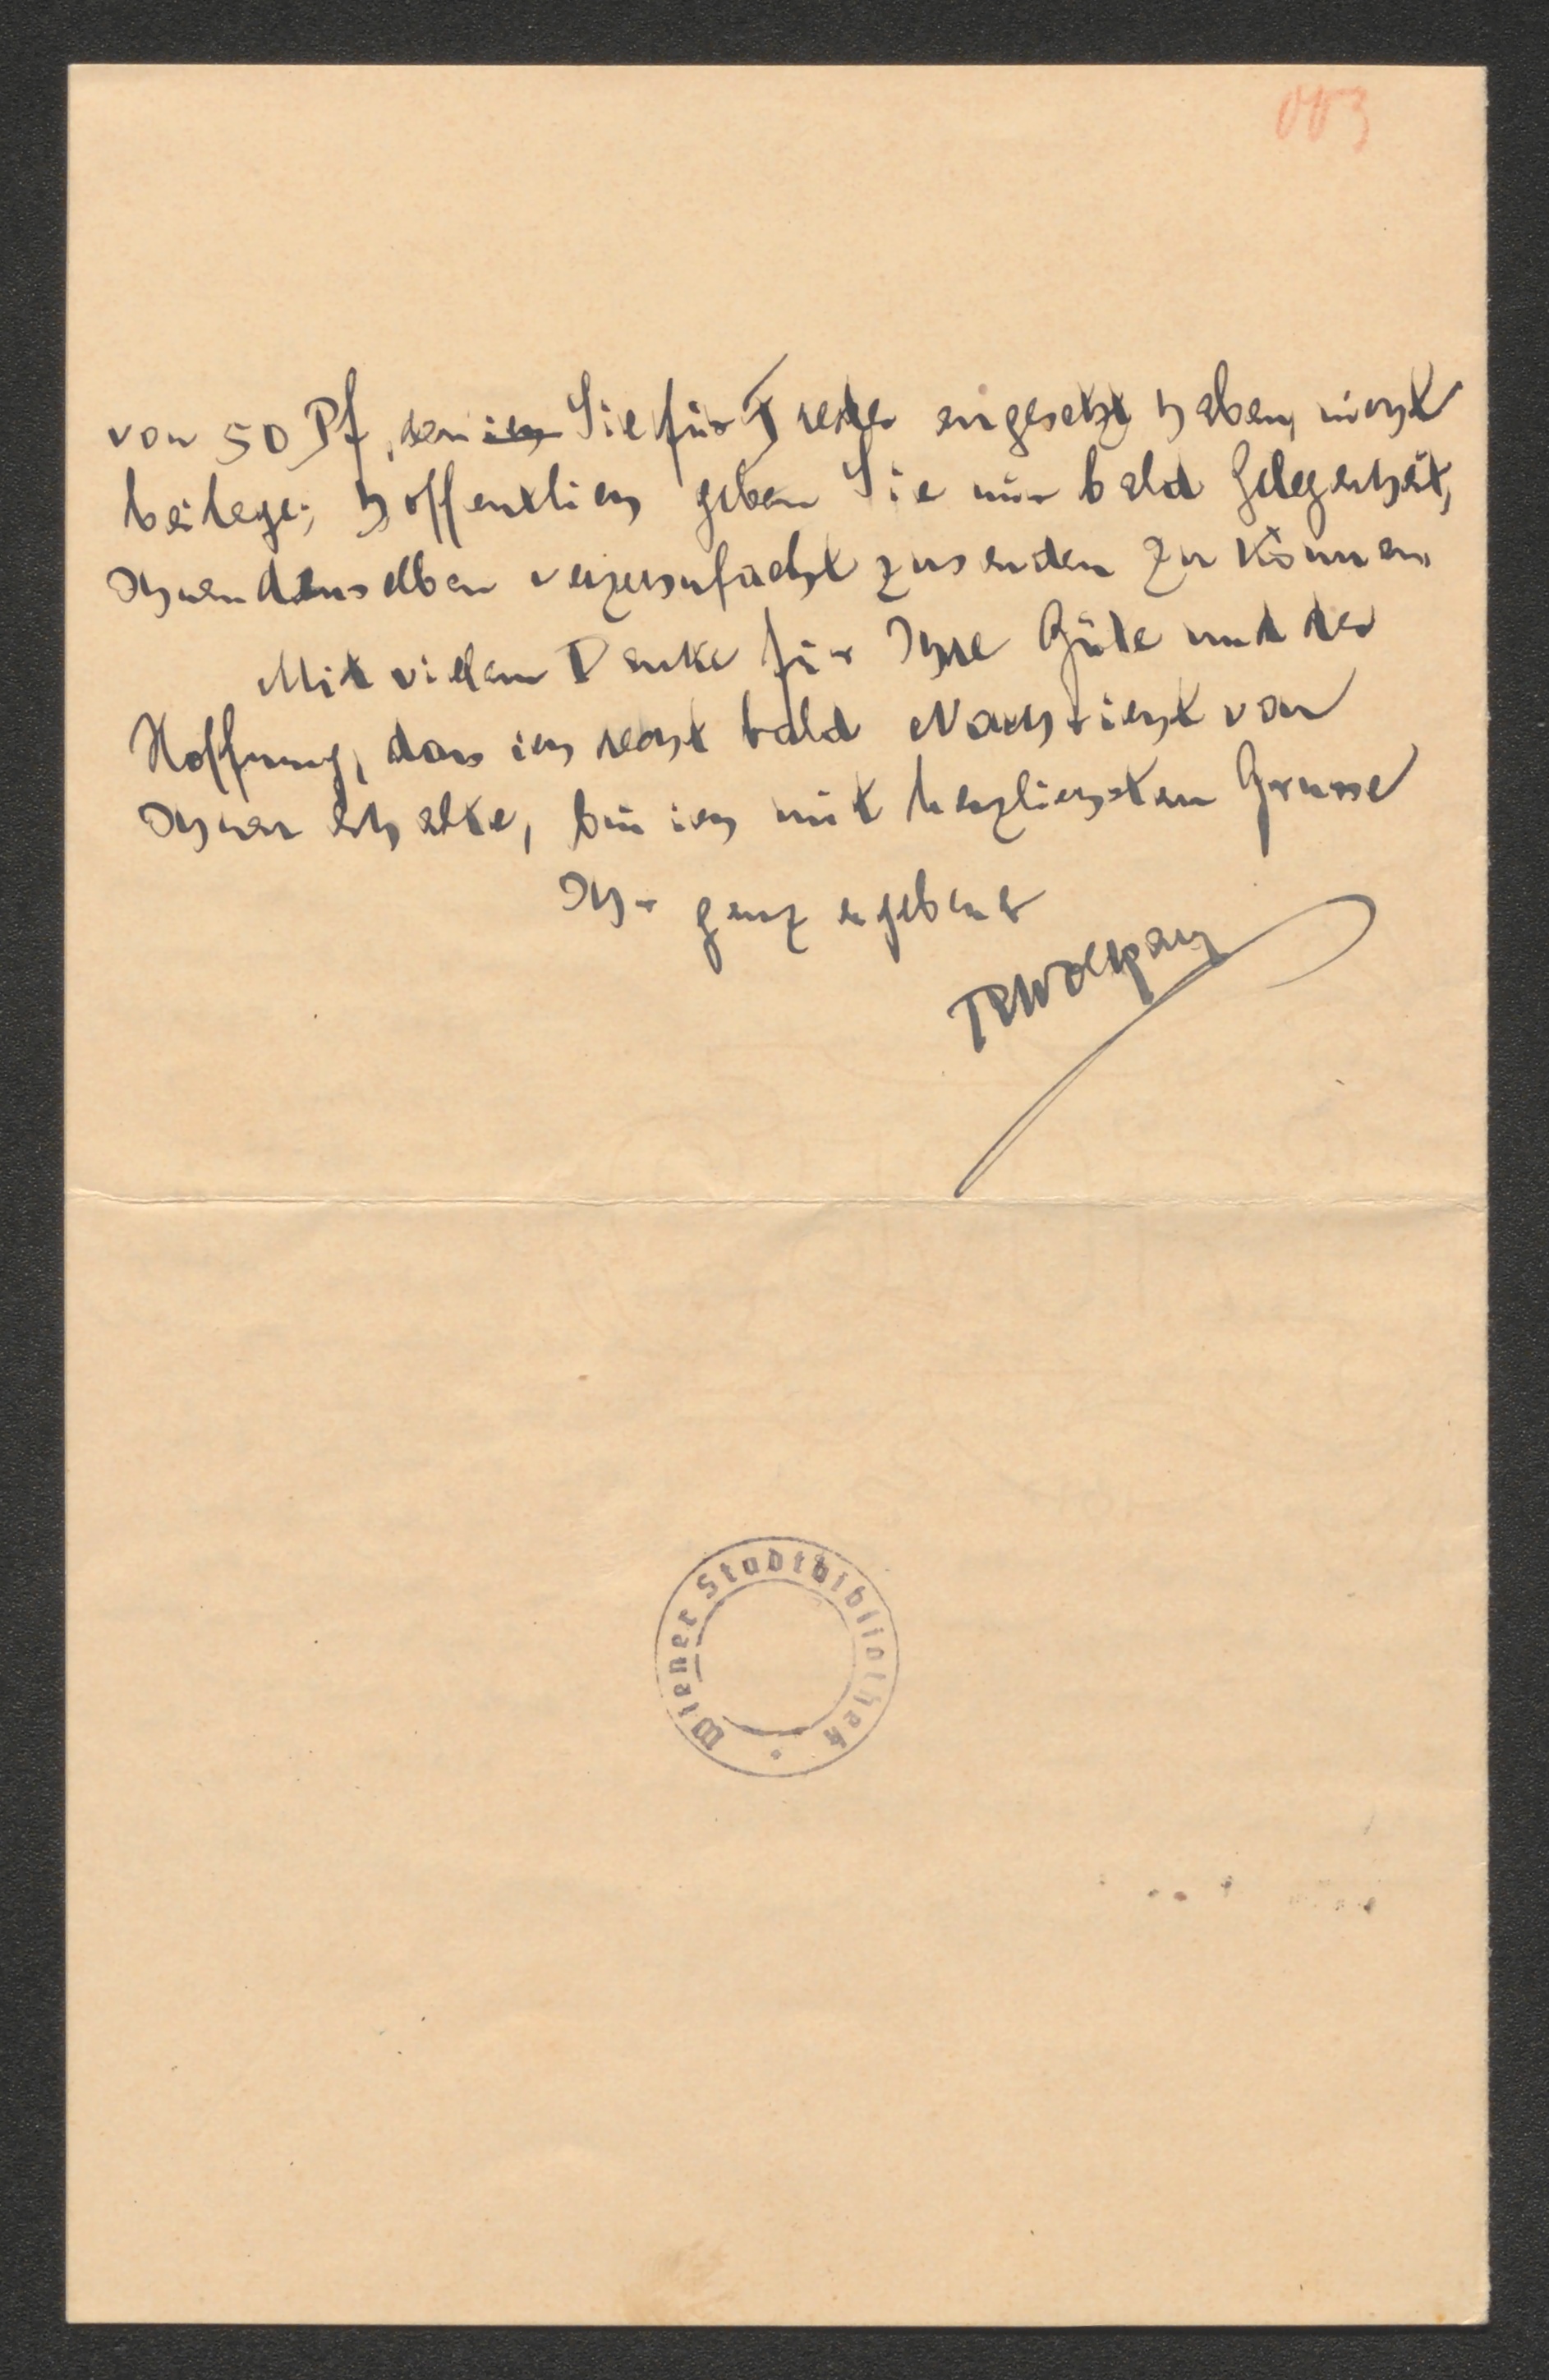 003
von 50 Pf, den ich Sie für Spesen eingesetzt haben, nicht
beilege; hoffentlich geben Sie mir bald Gelegenheit,
Ihnen denselben verzehnfacht zusenden zu können.
Mit vielem Danke für Ihre Güte und der
Hoffnung, dass ich recht bald Nachricht von
Ihnen erhalte, bin ich mit herzlichstem Grusse
Ihr ganz ergebener
Wiener Stadtbibliothek